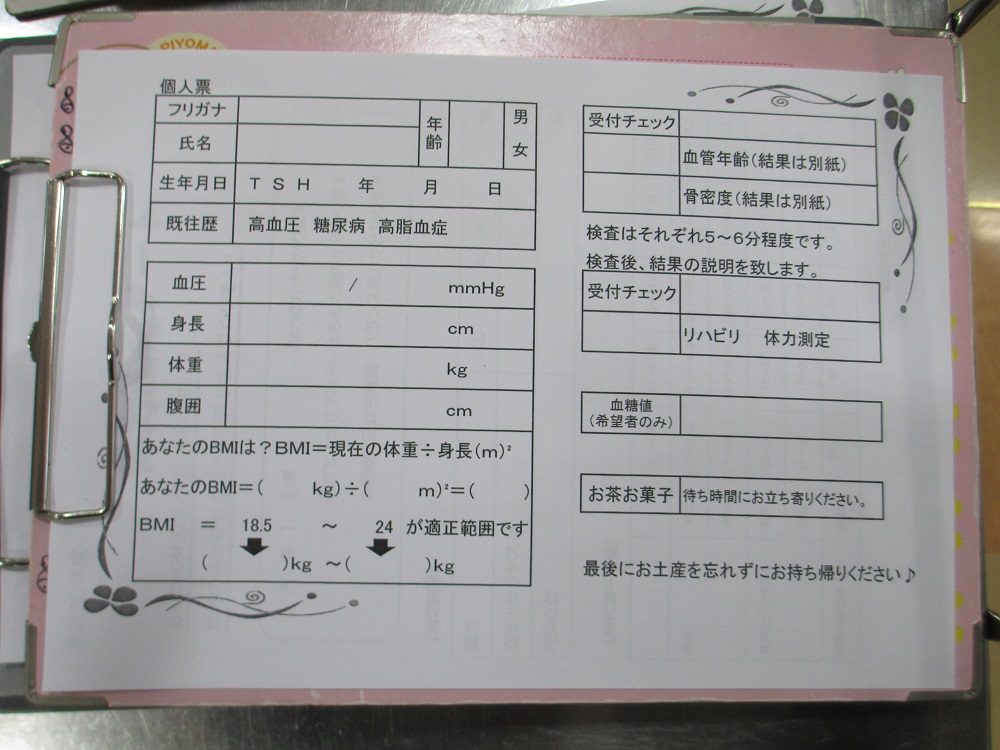 PIYOM
個人票
フリガナ
氏名
年齢
男
女
生年月日 T S H 年 月 日
既往歴 高血圧 糖尿病 高脂血症
血圧 / mmHg
身長 cm
体重 kg
腹囲 cm
あなたのBMIは?BMI=現在の体重÷身長(m)²
あなたのBMI=( kg)÷( m)²=( )
BMI = 18.5 ~ 24 が適正範囲です
( )kg ~( )kg
受付チェック
血管年齢(結果は別紙)
骨密度(結果は別紙)
検査はそれぞれ5~6分程度です。
検査後、結果の説明を致します。
受付チェック
リハビリ 体力測定
血糖値
(希望者のみ)
お茶お菓子 待ち時間にお立ち寄りください。
最後にお土産を忘れずにお持ち帰りください♪